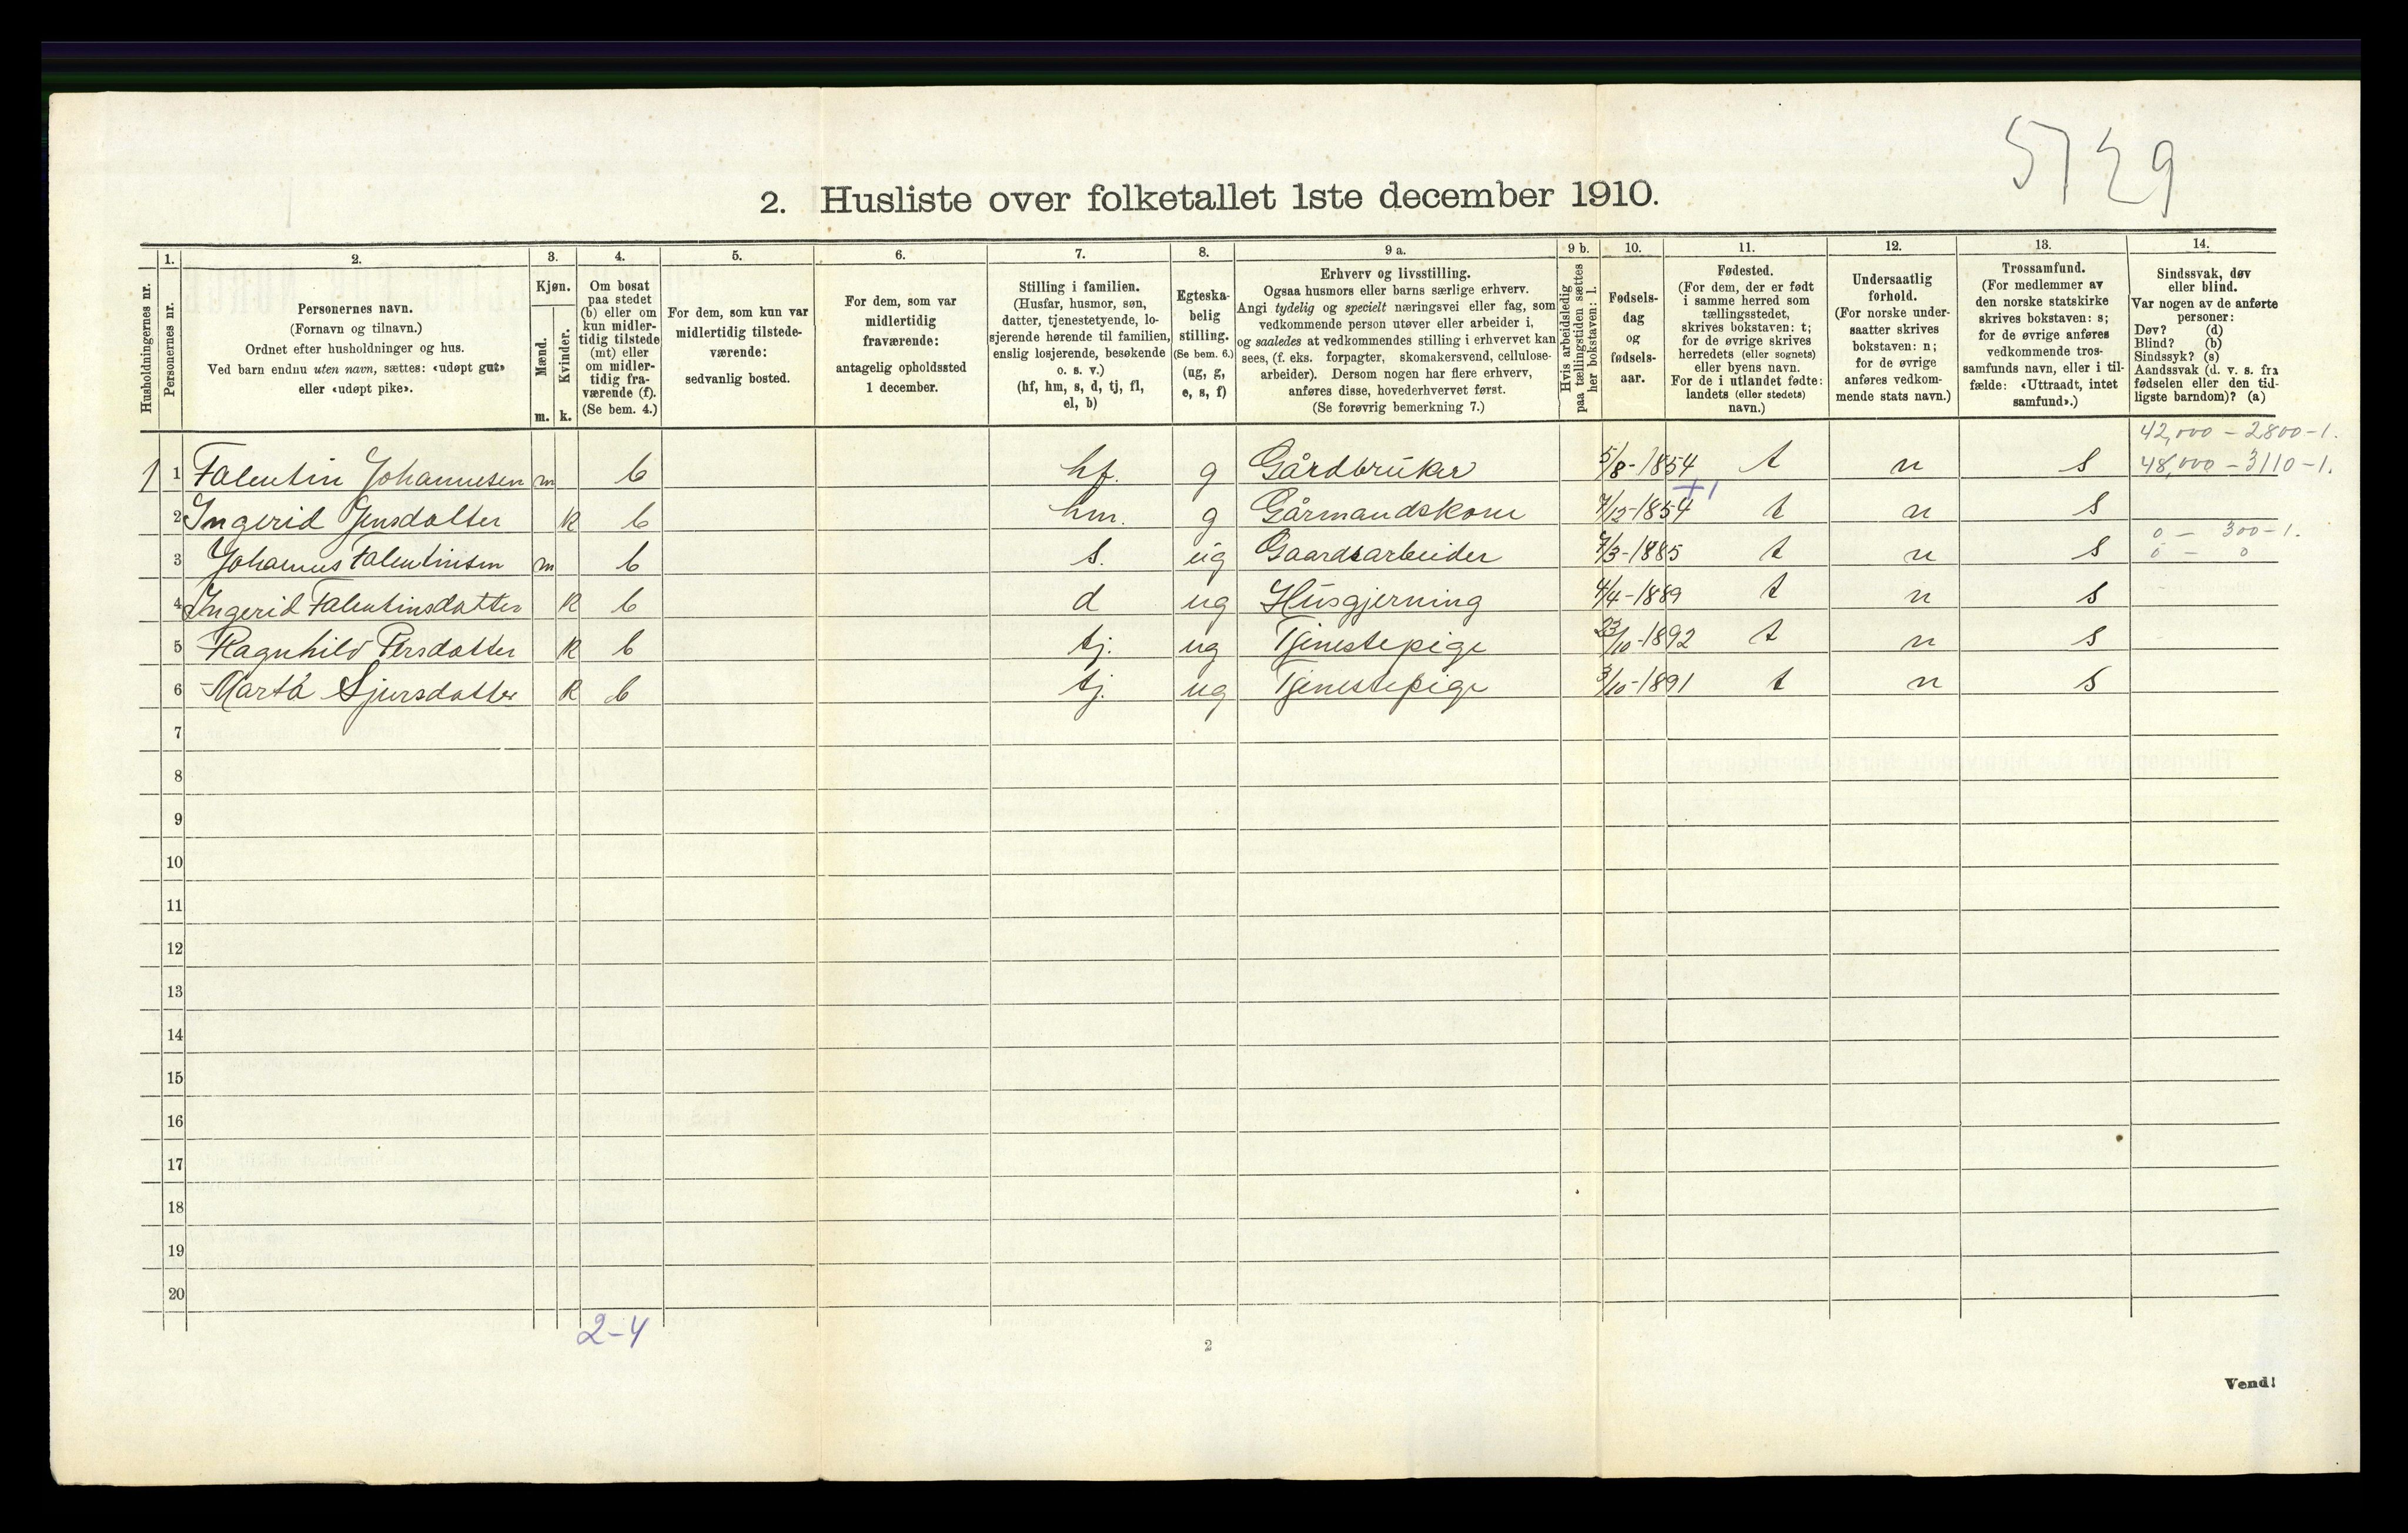 5729
2. Husliste over folketallet 1ste december 1910.
Husholdningernes nr.
1. Personernes nr.
2. Personernes navn.
(Fornavn og tilnavn.)
Ordnet efter husholdninger og hus.
Ved barn endnu uten navn, sættes: «udøpt gut»
eller «udøpt pike».
3. Kjøn.
Mænd. m.
Kvinder. k.
4. Om bosat
paa stedet
(b) eller om
kun midler-
tidig tilstede
(mt) eller
om midler-
tidig fra-
værende (f).
(Se bem. 4.)
5. For dem, som kun var
midlertidig tilstede-
værende:
sedvanlig bosted.
6. For dem, som var
midlertidig
fraværende:
antagelig opholdssted
1 december.
7. Stilling i familien.
(Husfar, husmor, søn,
datter, tjenestetyende, lo-
sjerende hørende til familien,
enslig losjerende, besøkende
o. s. v.)
(hf, hm, s, d, tj, fl,
el, b)
8. Egteska-
belig
stilling.
(Se bem. 6.)
(ug, g,
e, s, f)
9 a. Erhverv og livsstilling.
Ogsaa husmors eller barns særlige erhverv.
Angi tydelig og specielt næringsvei eller fag, som
vedkommende person utøver eller arbeider i,
og saaledes at vedkommendes stilling i erhvervet kan
sees, (f. eks. forpagter, skomakersvend, cellulose-
arbeider). Dersom nogen har flere erhverv,
anføres disse, hovederhvervet først.
(Se forøvrig bemerkning 7.)
9 b. Hvis arbeidsledig
paa tællingstiden sættes
her bokstaven: l.
10. Fødsels-
dag
og
fødsels-
aar.
11. Fødested.
(For dem, der er født
i samme herred som
tællingsstedet,
skrives bokstaven: t;
for de øvrige skrives
herredets (eller sognets)
eller byens navn.
For de i utlandet fødte:
landets (eller stedets)
navn.)
12. Undersaatlig
forhold.
(For norske under-
saatter skrives
bokstaven: n;
for de øvrige
anføres vedkom-
mende stats navn.)
13. Trossamfund.
(For medlemmer av
den norske statskirke
skrives bokstaven: s;
for de øvrige anføres
vedkommende tros-
samfunds navn, eller i til-
fælde: «Uttraadt, intet
samfund».)
14. Sindssvak, døv
eller blind.
Var nogen av de anførte
personer:
Døv? (d)
Blind? (b)
Sindssyk? (s)
Aandssvak (d. v. s. fra
fødselen eller den tid-
ligste barndom)? (a)
42,000 – 2800 – 1.
1 1 Falentin Johannesen m b hf. g Gårdbruker 5/8-1854 t n s 48,000 – 3110 – 1.
+1
2 Ingerid Jensdatter k b hm. g Gårmandskone 7/12-1854 t n s
0 – 300 – 1.
3 Johannes Falentinsen m b s. ug Gaardsarbeider 7/3-1885 t n s 0 – 0
4 Ingerid Falentinsdatter k b d ug Husgjerning 4/4-1889 t n s
5 Ragnhild Persdatter k b tj. ug Tjenestepige 23/10-1892 t n s
6 Marta Sjursdatter k b tj. ug Tjenestepige 3/10-1891 t n s
7
8
9
10
11
12
13
14
15
16
17
18
19
20
2-4
2
Vend!